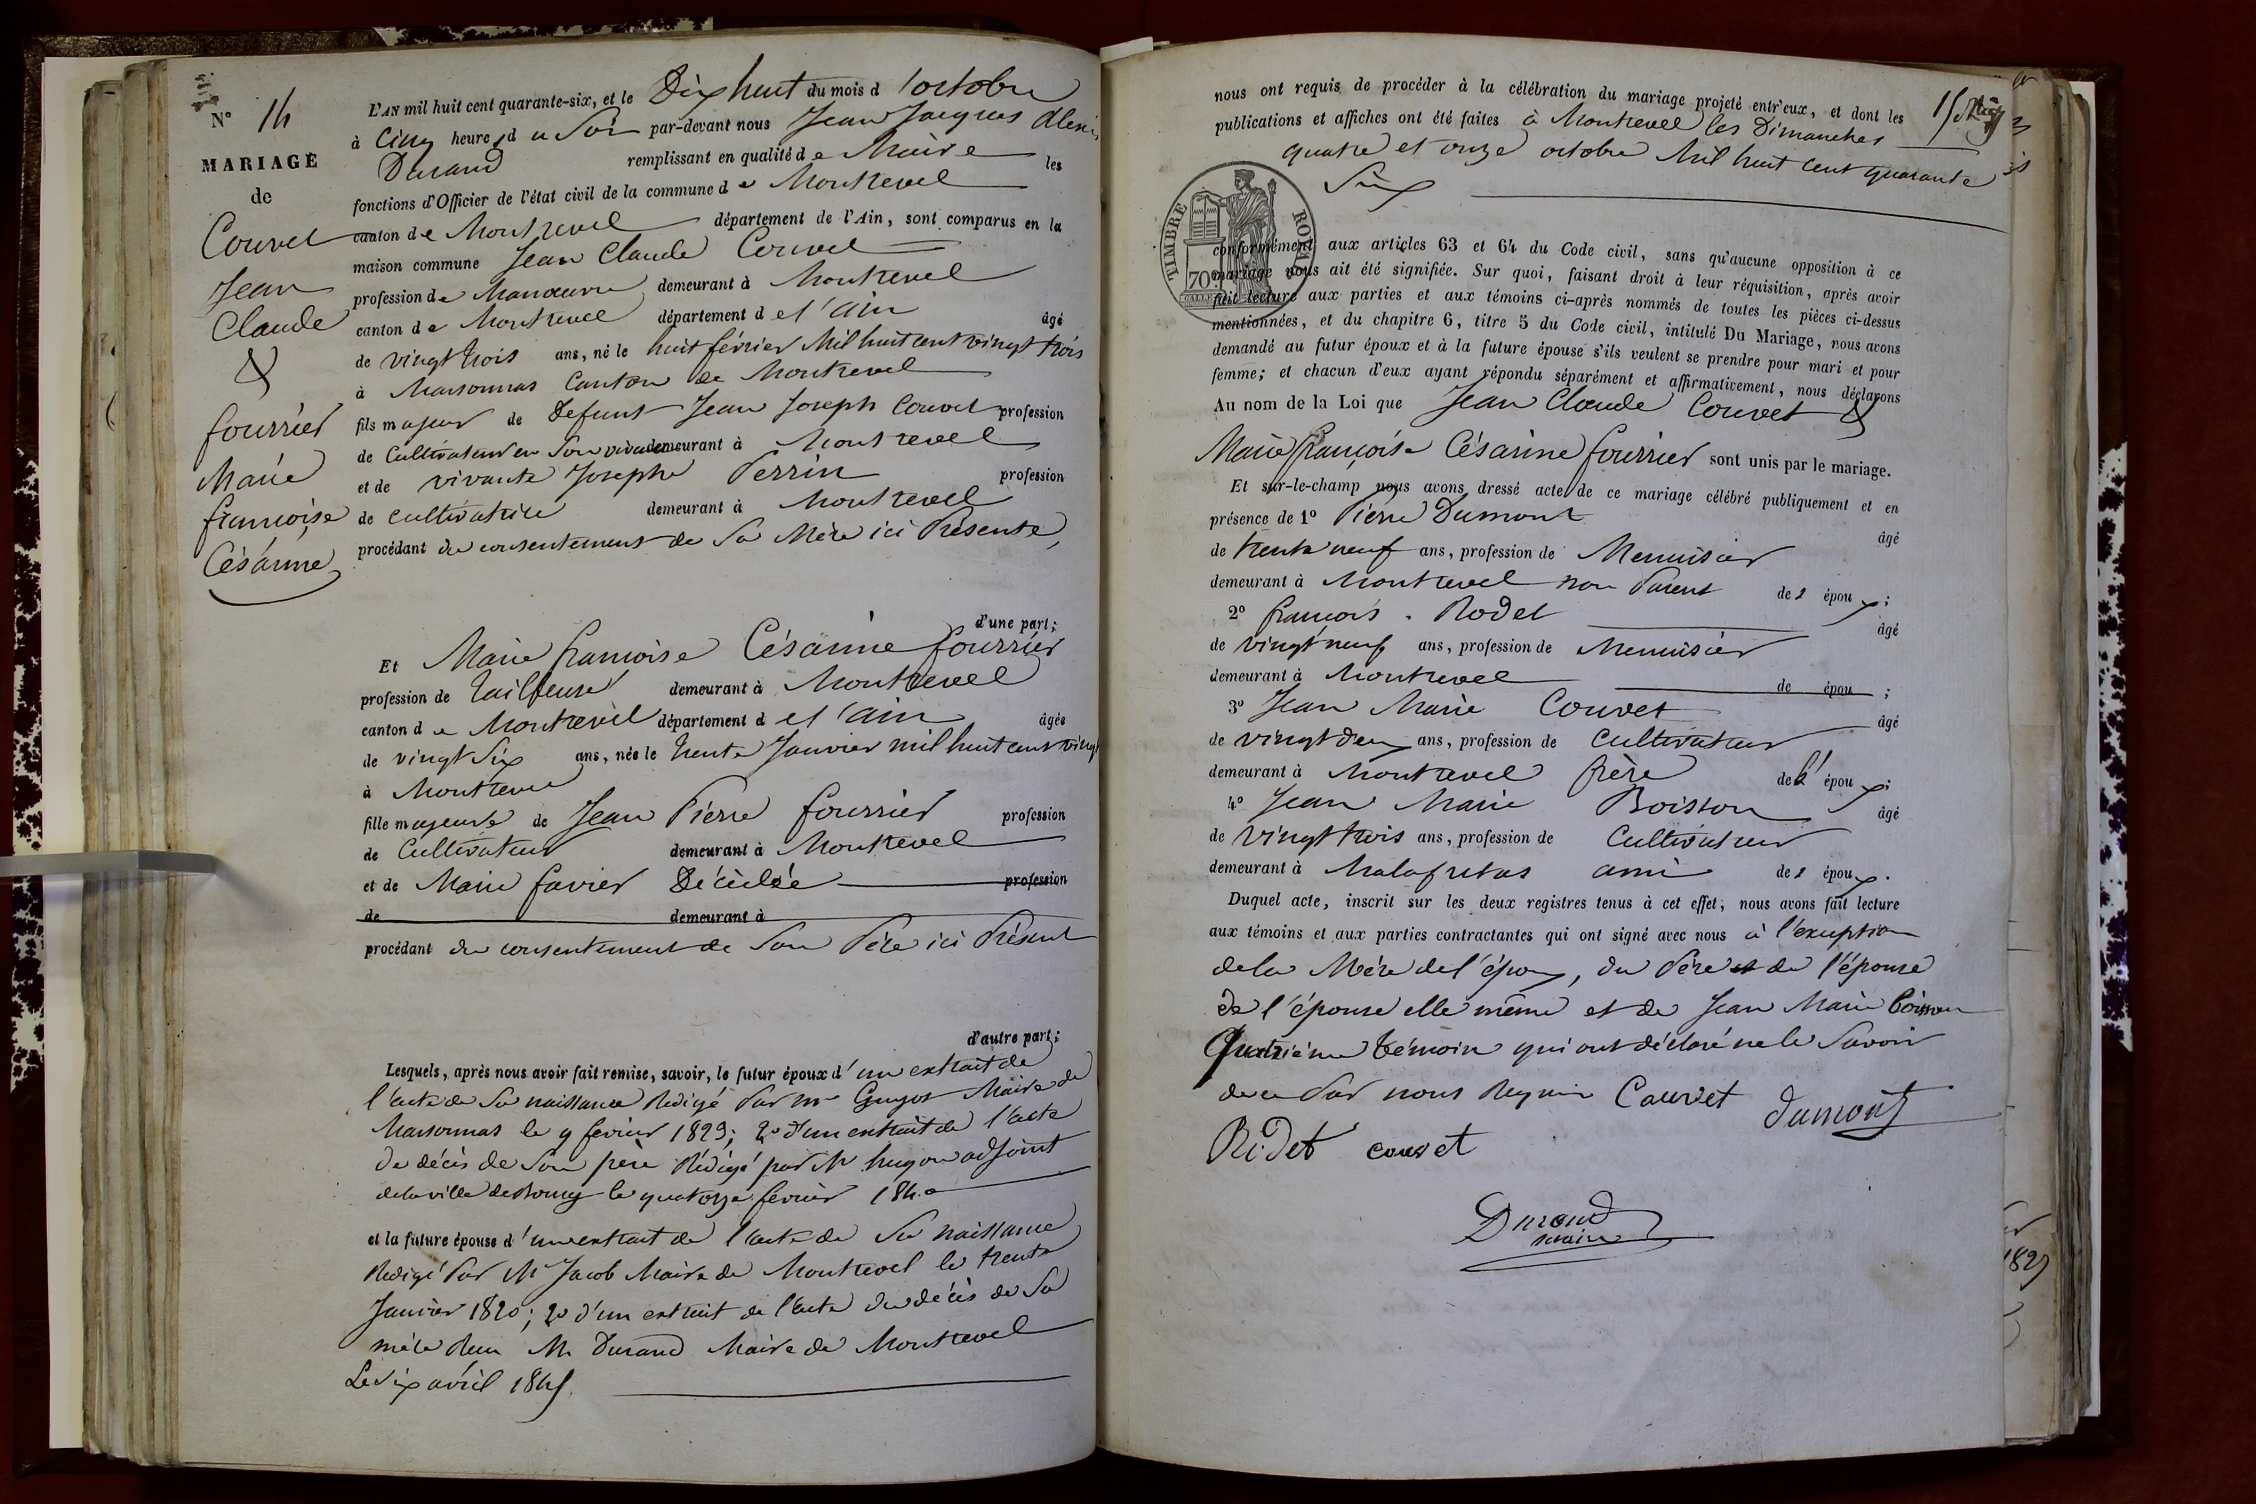 N° 14
MARIAGE
de
Couvet
Jean
Claude
&
fourrier
Marie
françoise
Césarine
L'AN mil huit cent quarante-six, et le Dix huit du mois d'octobre
à Cinq heures du Soir par-devant nous Jean Jacques Alexis
Durand remplissant en qualité de Maire les
fonctions d'Officier de l'état civil de la commune de Montrevel
canton de Montrevel département de l'Ain, sont comparus en la
maison commune Jean Claude Couvet
profession de Manœuvre demeurant à Montrevel
canton de Montrevel département de l'ain âgé
de vingt trois ans, né le huit février Mil huit cent vingt trois
à Marsonnas Canton de Montrevel
fils majeur de Defunt Jean Joseph Couvet profession
de Cultivateur en Son vivant demeurant à Montrevel
et de vivante Josephe Perrin profession
de cultivatrice demeurant à Montrevel
procédant du consentement de Sa Mère ici Présente,
d'une part;
Et Marie françoise Césarine fourrier
profession de tailleuse demeurant à Montrevel
canton de Montrevel département de l'ain âgée
de vingt Six ans, née le trente Janvier mil huit cent vingt
à Montrevel
fille majeure de Jean Pierre fourrier profession
de Cultivateur demeurant à Montrevel
et de Marie favier Décédée profession
de demeurant à
procédant du consentement de Son Père ici Présent
d'autre part;
Lesquels, après nous avoir fait remise, savoir, le futur époux d'un extrait de
l'acte de Sa naissance Redigé Par Mr Guyot Maire de
Marsonnas le 9 février 1823; 2° d'un extrait de l'acte
de décès de Son père Rédigé par Mr hugon adjoint
de la ville de Bourg le quatorze février 184
et la future épouse d'un extrait de l'acte de Sa naissance
Redigé Par Mr Jacob Maire de Montrevel le trente
Janvier 1820; 2° d'un extrait de l'acte du décès de Sa
mère Mr Durand Maire de Montrevel
Le Six avril 1845.
nous ont requis de procéder à la célébration du mariage projeté entr'eux, et dont les
publications et affiches ont été faites à Montrevel les Dimanches
quatre et onze octobre Mil huit cent quarante
Six
TIMBRE ROYAL
70c
conformément aux articles 63 et 64 du Code civil, sans qu'aucune opposition à ce
mariage nous ait été signifiée. Sur quoi, faisant droit à leur réquisition, après avoir
fait lecture aux parties et aux témoins ci-après nommés de toutes les pièces ci-dessus
mentionnées, et du chapitre 6, titre 5 du Code civil, intitulé Du Mariage, nous avons
demandé au futur époux et à la future épouse s'ils veulent se prendre pour mari et pour
femme; et chacun d'eux ayant répondu séparément et affirmativement, nous déclarons
Au nom de la Loi que Jean Claude Couvet &
Marie françoise Césarine fourrier sont unis par le mariage.
Et sur-le-champ nous avons dressé acte de ce mariage célébré publiquement et en
présence de 1° Pierre Dumont âgé
de trente neuf ans, profession de Menuisier
demeurant à Montrevel non Parent de l époux;
2° françois Rodet âgé
de vingt neuf ans, profession de Menuisier
demeurant à Montrevel de épou ;
3° Jean Marie Couvet âgé
de vingt deux ans, profession de Cultivateur
demeurant à Montrevel frère de l' époux;
4° Jean Marie Boisson âgé
de vingt trois ans, profession de Cultivateur
demeurant à Malafretas ami de l époux.
Duquel acte, inscrit sur les deux registres tenus à cet effet, nous avons fait lecture
aux témoins et aux parties contractantes qui ont signé avec nous à l'exception
de la Mère de l'époux, du Père de l'épouse
de l'épouse elle même et de Jean Marie Boisson
Quatrième témoin qui ont déclaré ne le Savoir
de ce Par nous Requis Couvet Dumont
Rodet couvet
Durand
maire